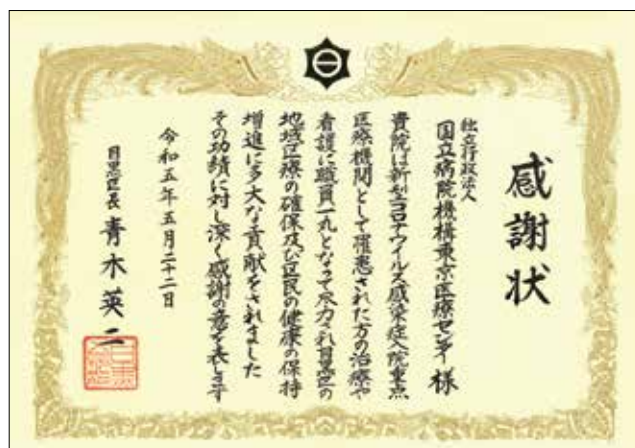 感謝状
独立行政法人
国立病院機構東京医療センター 様
貴院は新型コロナウイルス感染症入院重点
医療機関として罹患された方の治療や
看護に職員一丸となって尽力され目黒区の
地域医療の確保及び区民の健康の保持
増進に多大な貢献をされました
その功績に対し深く感謝の意を表します
令和五年五月二十二日
目黒区長 青木英二